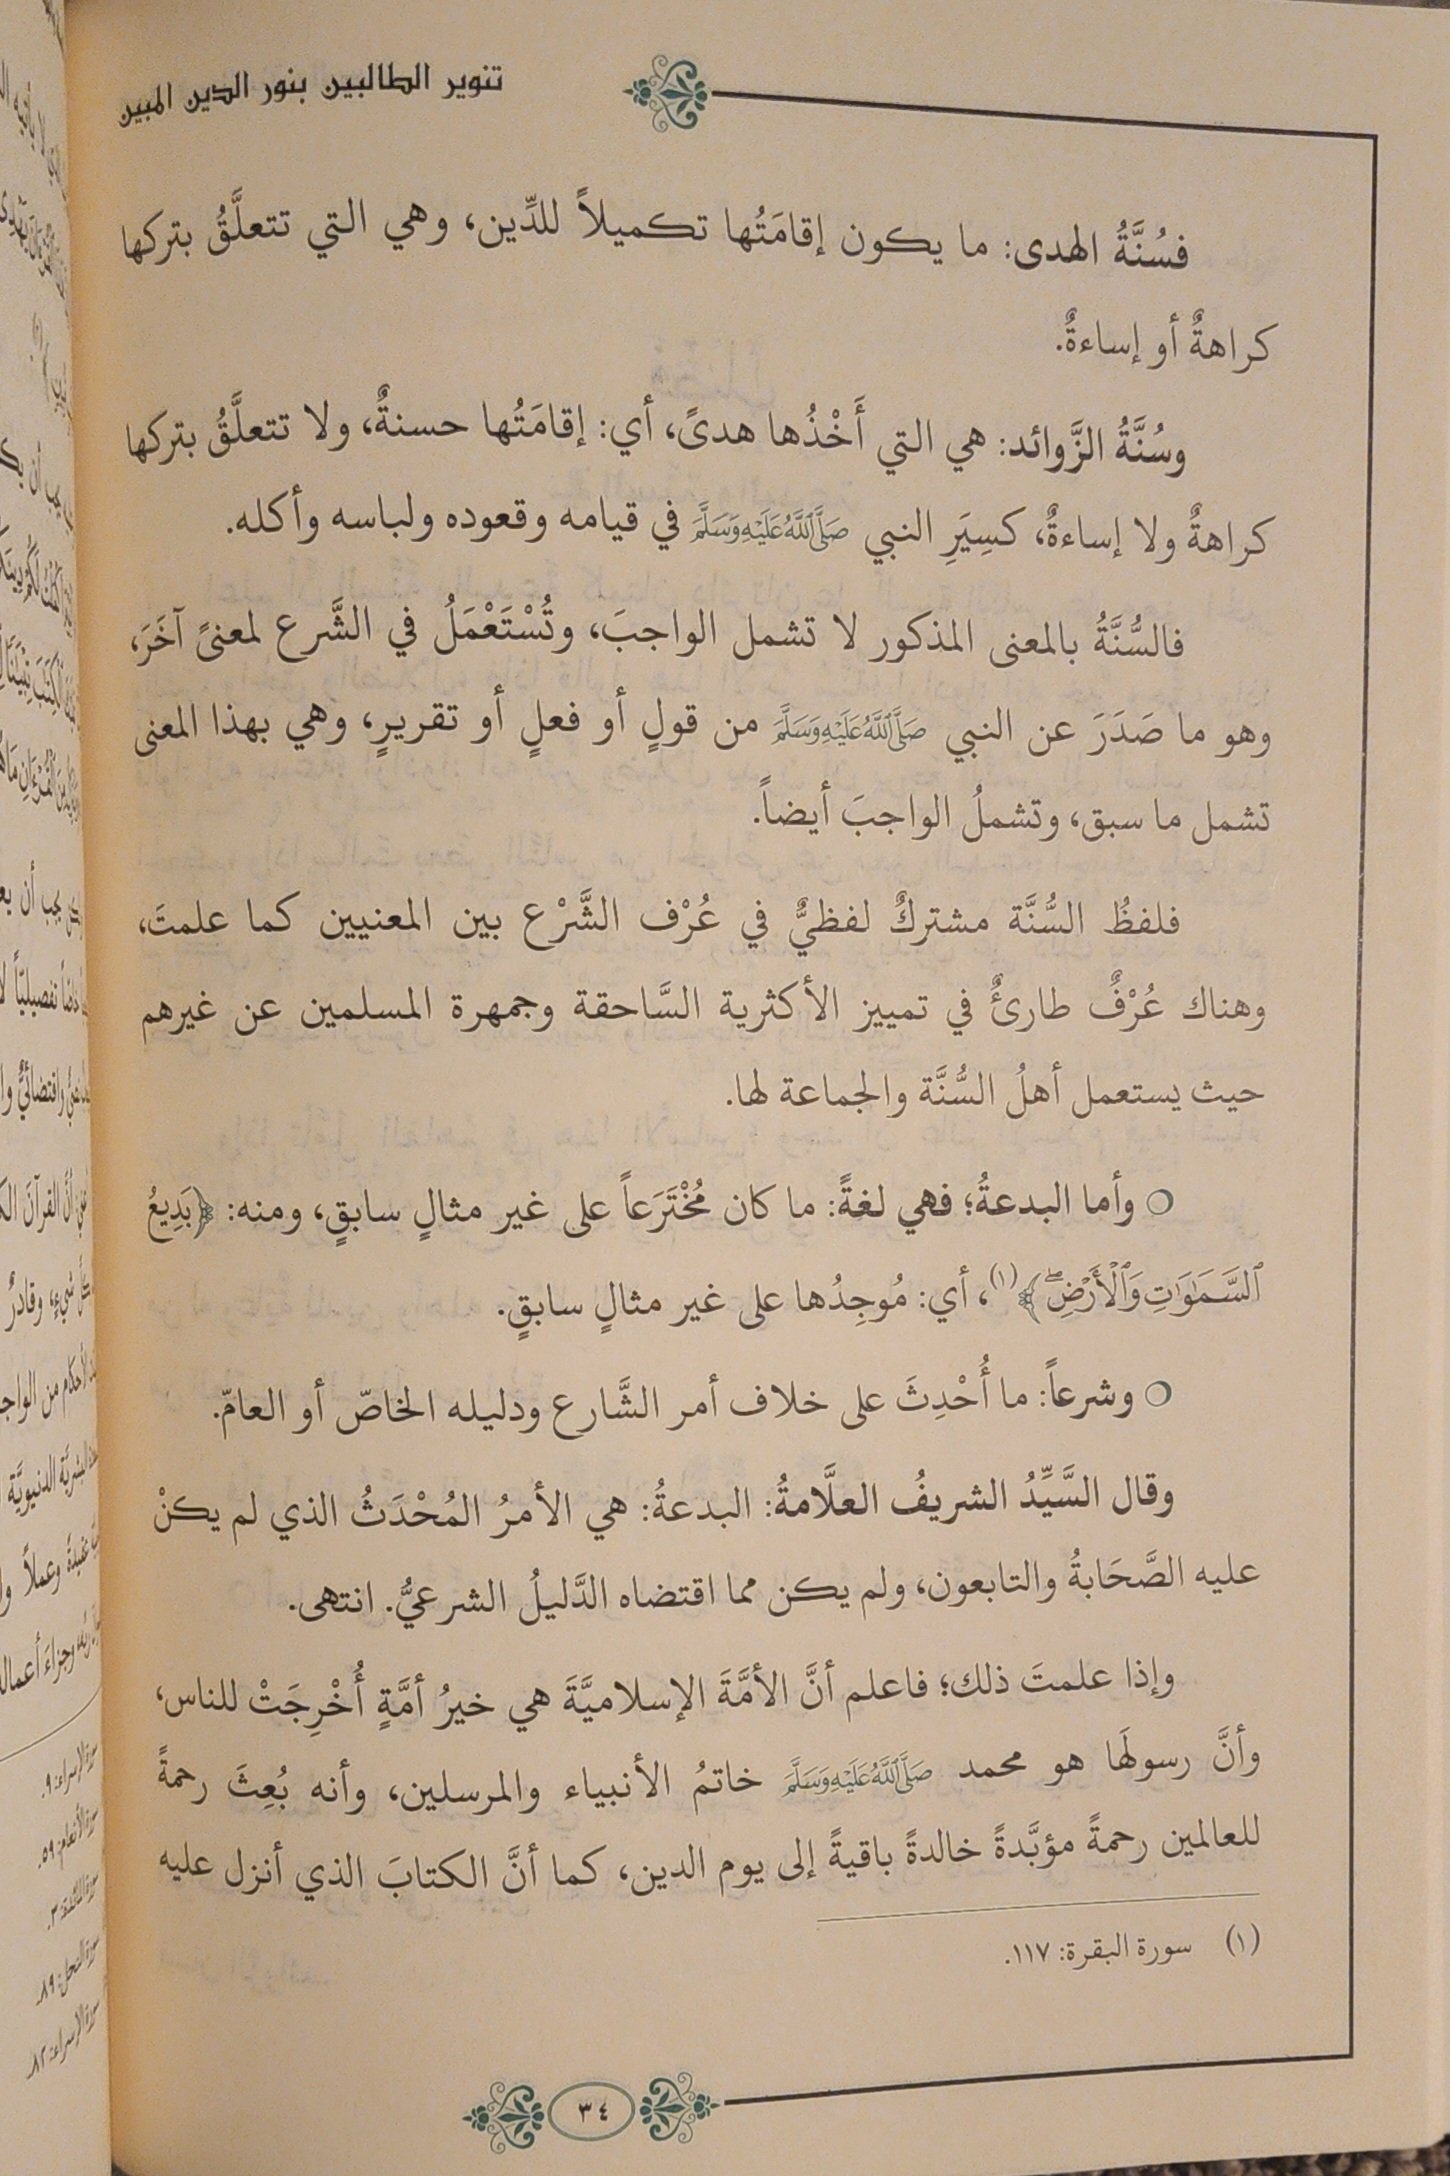 تنوير الطالبين بنور الدين المبين
فسُنَّةُ الهدى: ما يكون إقامَتُها تكميلاً للدِّين، وهي التي تتعلَّقُ بتركها
كراهةٌ أو إساءةٌ.
وسُنَّةُ الزَّوائد: هي التي أَخْذُها هدىً، أي: إقامَتُها حسنةٌ، ولا تتعلَّقُ بتركها
كراهةٌ ولا إساءةٌ، كسِيَرِ النبي صَلَّى اللَّهُ عَلَيْهِ وَسَلَّمَ في قيامه وقعوده ولباسه وأكله.
فالسُّنَّةُ بالمعنى المذكور لا تشمل الواجبَ، وتُسْتَعْمَلُ في الشَّرع لمعنىً آخَرَ،
وهو ما صَدَرَ عن النبي صَلَّى اللَّهُ عَلَيْهِ وَسَلَّمَ من قولٍ أو فعلٍ أو تقريرٍ، وهي بهذا المعنى
تشمل ما سبق، وتشملُ الواجبَ أيضاً.
فلفظُ السُّنَّة مشتركٌ لفظيٌّ في عُرْف الشَّرْع بين المعنيين كما علمتَ،
وهناك عُرْفٌ طارئٌ في تمييز الأكثرية السَّاحقة وجمهرة المسلمين عن غيرهم
حيث يستعمل أهلُ السُّنَّة والجماعة لها.
○ وأما البدعةُ؛ فهي لغةً: ما كان مُخْتَرَعاً على غير مثالٍ سابقٍ، ومنه: ﴿بَدِيعُ
ٱلسَّمَٰوَٰتِ وَٱلْأَرْضِۖ﴾(١)، أي: مُوجِدُها على غير مثالٍ سابقٍ.
○ وشرعاً: ما أُحْدِثَ على خلاف أمر الشَّارع ودليله الخاصّ أو العامّ.
وقال السَّيِّدُ الشريفُ العلَّامةُ: البدعةُ: هي الأمرُ المُحْدَثُ الذي لم يكنْ
عليه الصَّحَابةُ والتابعون، ولم يكن مما اقتضاه الدَّليلُ الشرعيُّ. انتهى.
وإذا علمتَ ذلك؛ فاعلم أنَّ الأمَّةَ الإسلاميَّةَ هي خيرُ أمَّةٍ أُخْرِجَتْ للناس،
وأنَّ رسولَها هو محمد صَلَّى اللَّهُ عَلَيْهِ وَسَلَّمَ خاتمُ الأنبياء والمرسلين، وأنه بُعِثَ رحمةً
للعالمين رحمةً مؤبَّدةً خالدةً باقيةً إلى يوم الدين، كما أنَّ الكتابَ الذي أنزل عليه
(١) سورة البقرة: ١١٧.
٣٤